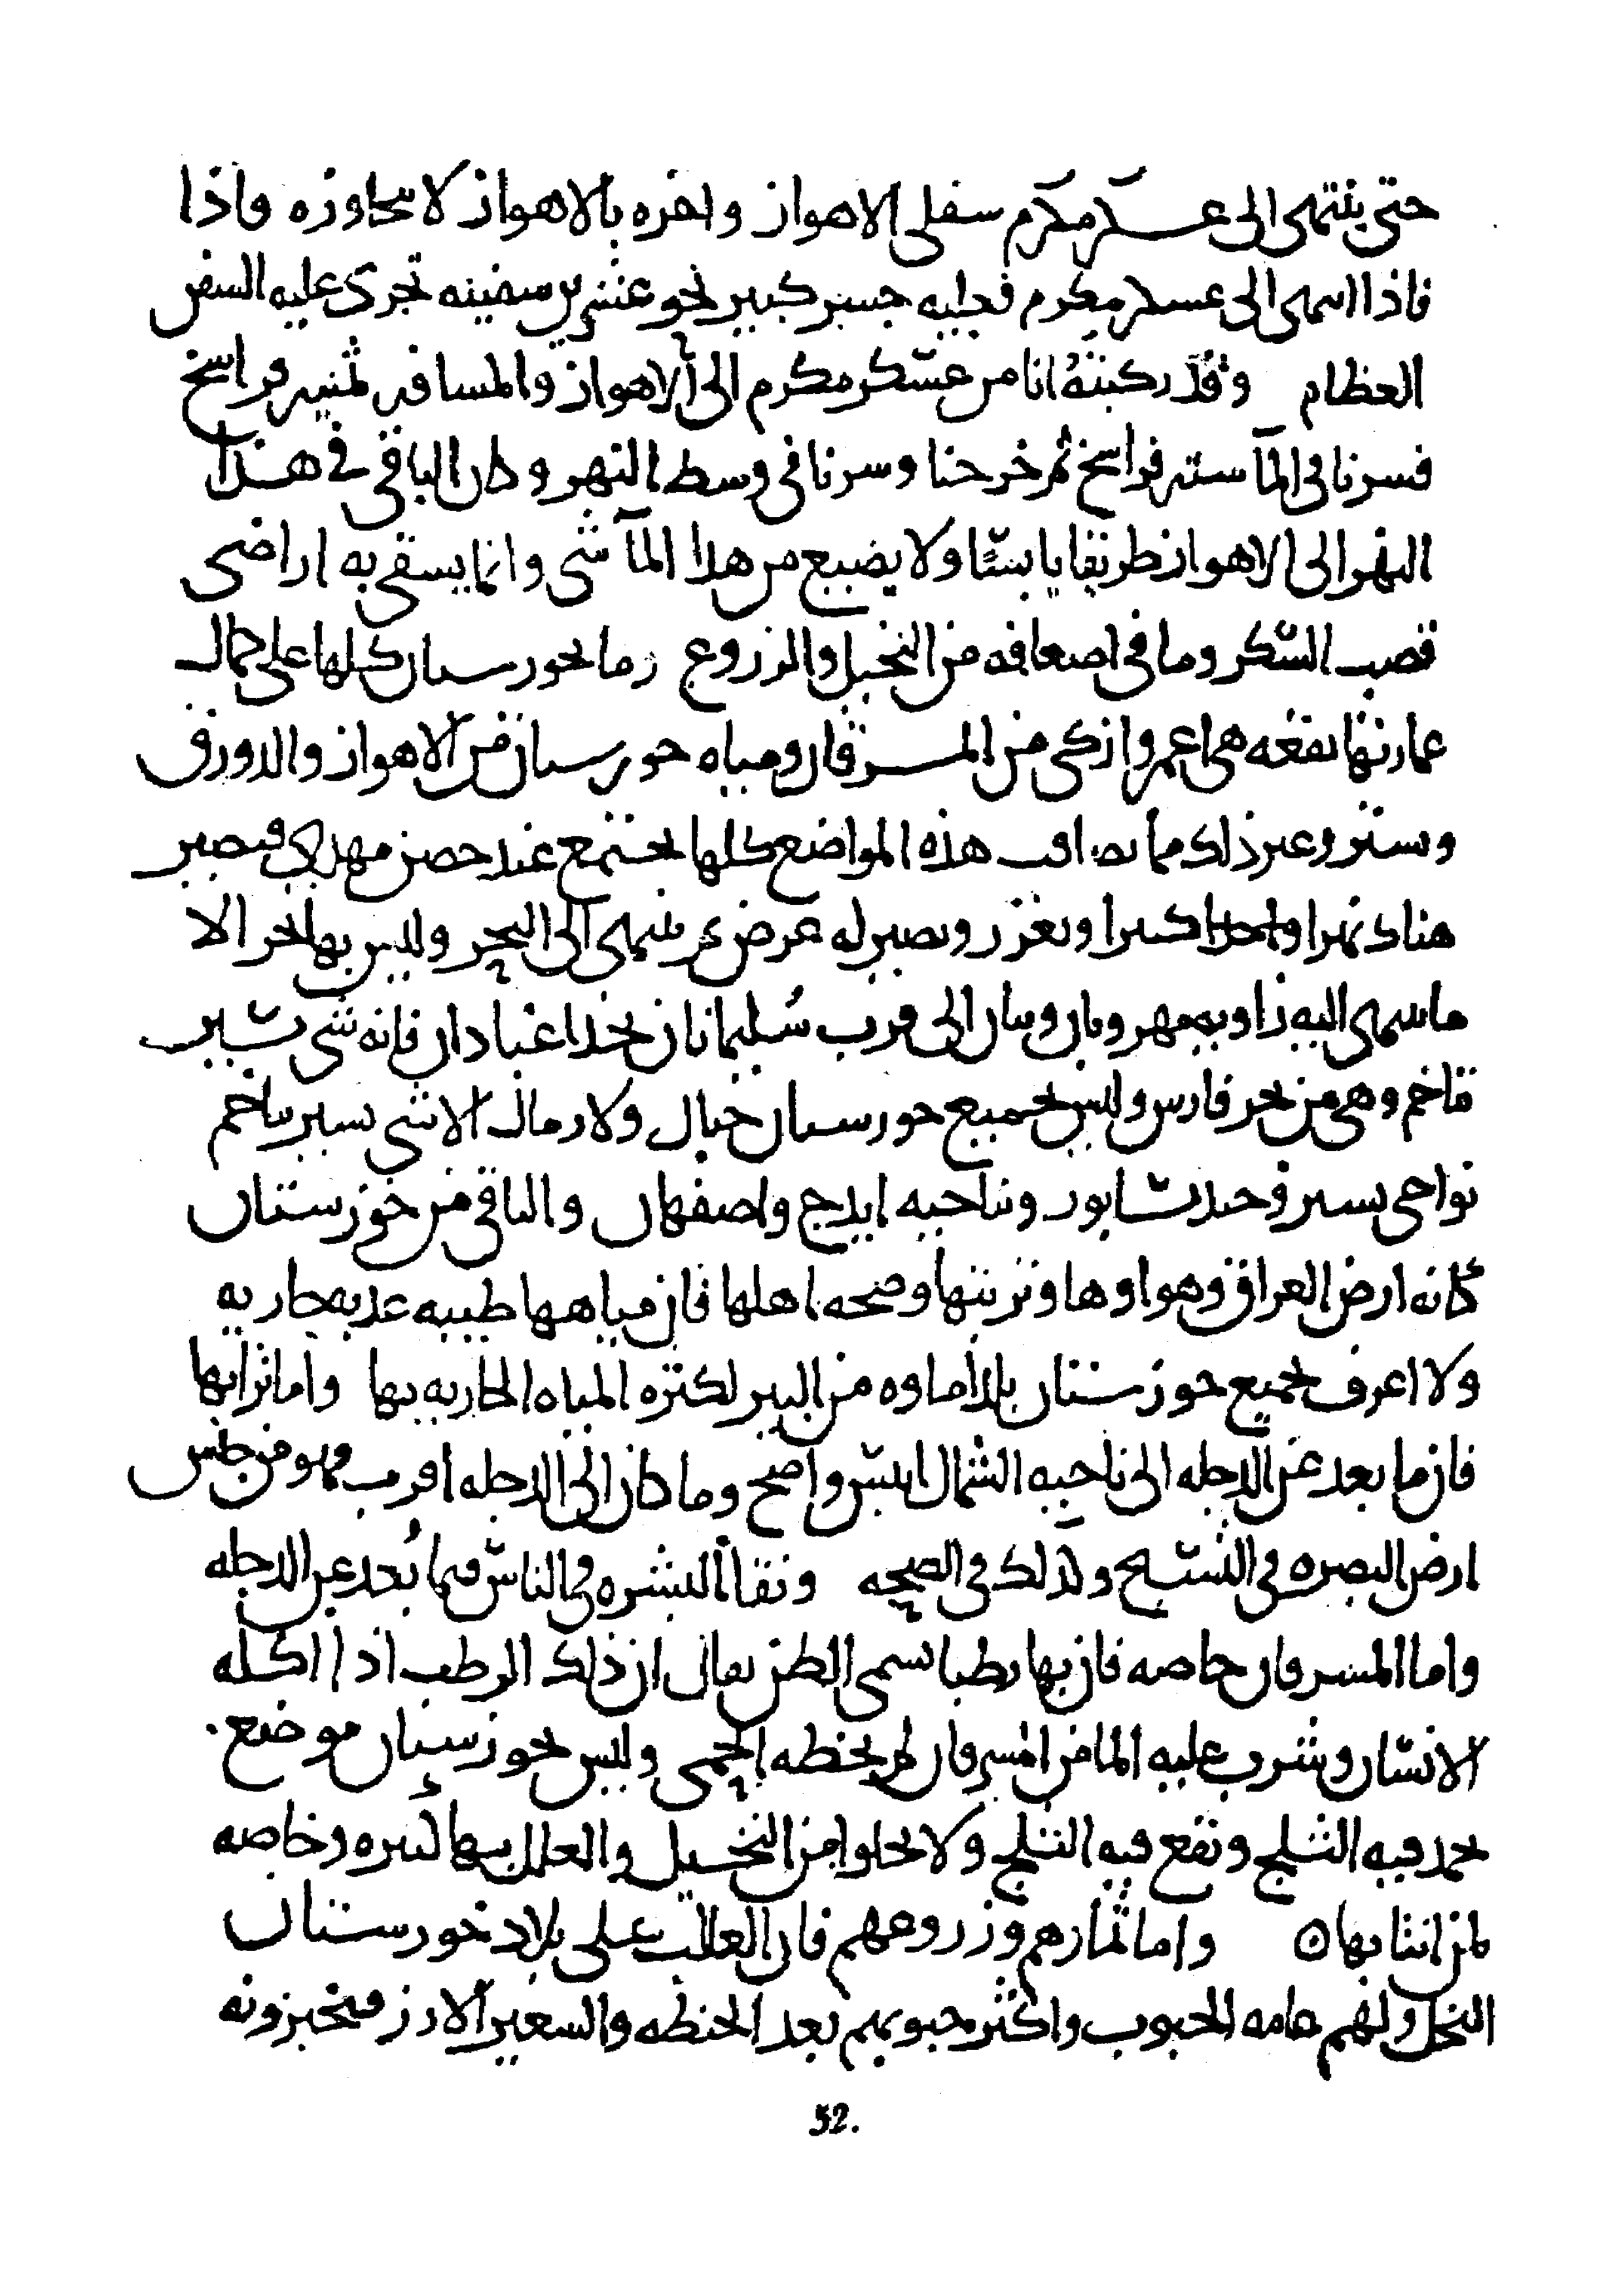 حتى ينتهى الى عسكر مكرم سفلى الاهواز واخره بالاهواز لا يتجاوزه واذا
فاذا انتهى الى عسكر مكرم فعليه جسر كبير نحو عشرين سفينه تجرى عليه السفن
العظام وقد ركبته انا من عسكر مكرم الى الاهواز والمسافه ثمنيه فراسخ
فسرنا فى المآ سته فراسخ ثم خرجنا وسرنا فى وسط النهر وكان الباقى فى هذا
النهر الى الاهواز طريقا يابسًا ولا يضيع من هذا المآ شى وانما يسقى به اراضى
قصب السكر وما فى اضعافه من النخيل والزروع وما بخورستان كلها على كمال
عمارتها بقعه هى اعمر وازكى من المسرقان ومياه خورستان من الاهواز والدورق
وتستر وغير ذلك مما يصاقب هذه المواضع كلها تجتمع عند حصن مهدى فيصير
هناك نهرا واحدا كبيرا ويغزر ويصير له عرض ثم ينتهى الى البحر وليس بها بحر الا
ما ينتهى اليه زاويه مهروبان وسان الى قرب سليمانان بحذا عبادان فانه شى يسير
تاخم وهى من بحر فارس وليس بجميع خورستان جبال ولا رمال الا شى يسير يتاخم
نواحى تستر وجندىسابور وناحيه ايدج واصفهان والباقى من خوزستان
كانه ارض العراق وهواوها وتربتها وصحه اهلها فان مياهها طيبه عذبه جاريه
ولا اعرف بجميع خوزستان بلدا ماوه من البير لكثره المياه الجاريه بها واما ترابها
فان ما بعد عن الدجله الى ناحيه الشمال ايبس واصح وما كان الى الدجله اقرب فهو من جنس
ارض البصره فى التسبخ وكذلك فى الصحه ونقآ البشره فى الناس فيما بُعد عن الدجله
واما المسرقان خاصه فان بها رطبا يسمى الطن يقال ان ذلك الرطب اذا اكله
الانسان وشرب عليه الما من المسرقان لم يخطه الحمى وليس بخوزستان موضع
يجمد فيه الثلج ويقع فيه الثلج ولا يخلوا من النخيل والعلل بها كثيره وخاصه
لمن انتابها ه واما ثمارهم وزروعهم فان الغالب على بلاد خورستان
النخل ولهم عامه الحبوب واكثر حبوبهم بعد الحنطه والشعير الارز فيخبزونه
52.